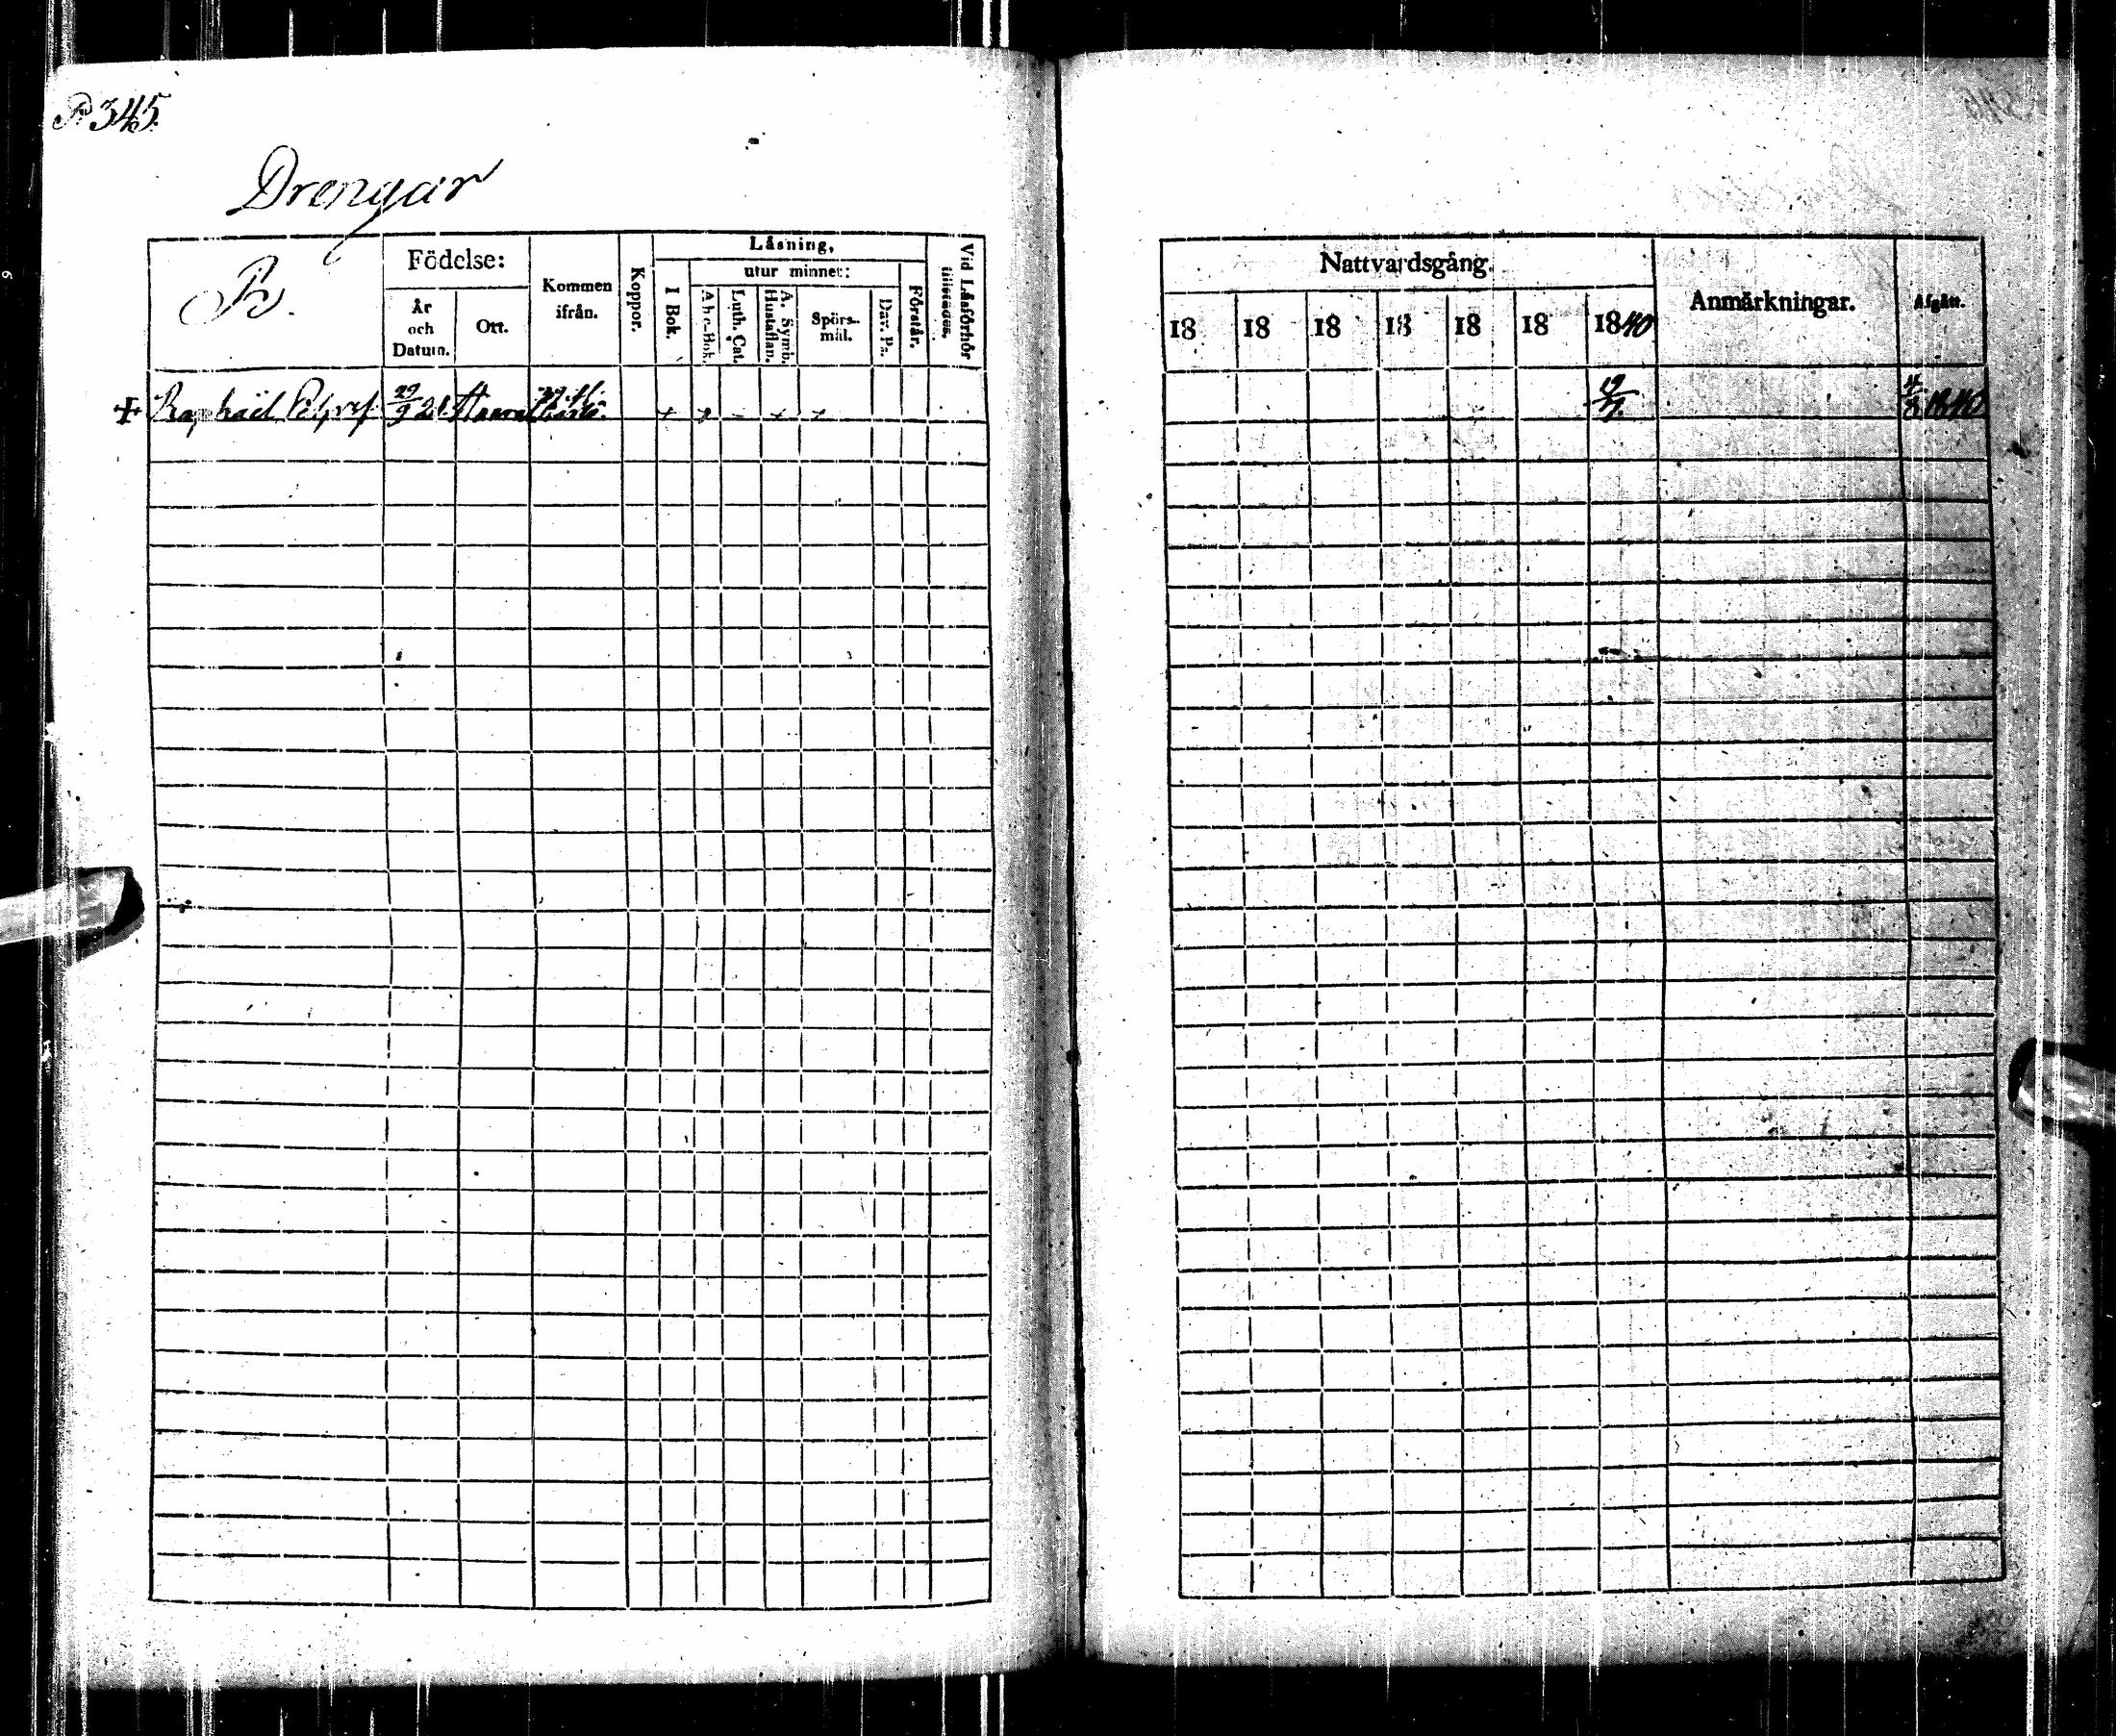 P. 345.
Drengar
R.
Födelse:
År och Datum.
Ort.
Kommen ifrån.
Koppor.
Läsning,
I Bok.
utur minnet:
Abc-Bok.
Luth. Cat.
A. Symb. Hustaflan.
Spörs-mål.
Dav. Ps.
Förstår.
Vid Läsförhör tillstädes.
Nattvardsgång.
18 18 18 18 18 18 1840
Anmärkningar.
Afgått.
+ Raphaël 29/9 21. + + + 19/7 4/8 1840